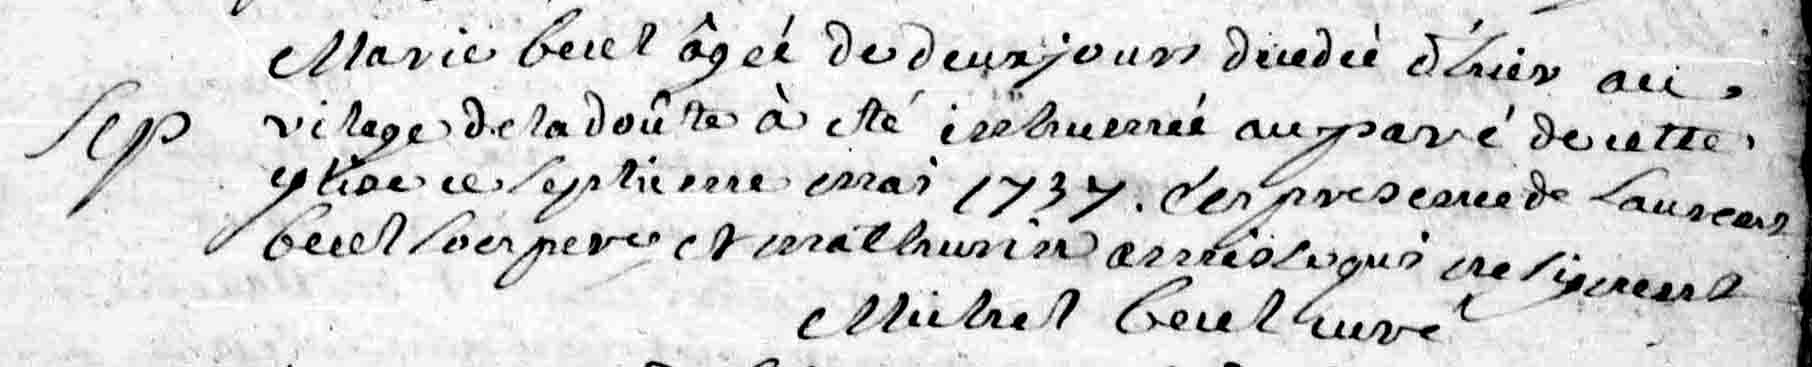 Marie becel âgeé de deux jours decedeé d'hier au
Sep vilage de la doûte à eté inhumeé au pavé de cette
eglise ce septieme mai 1737. en presence de Laurent
becel son pere et mathurin qui ne signent
Michel becel curé